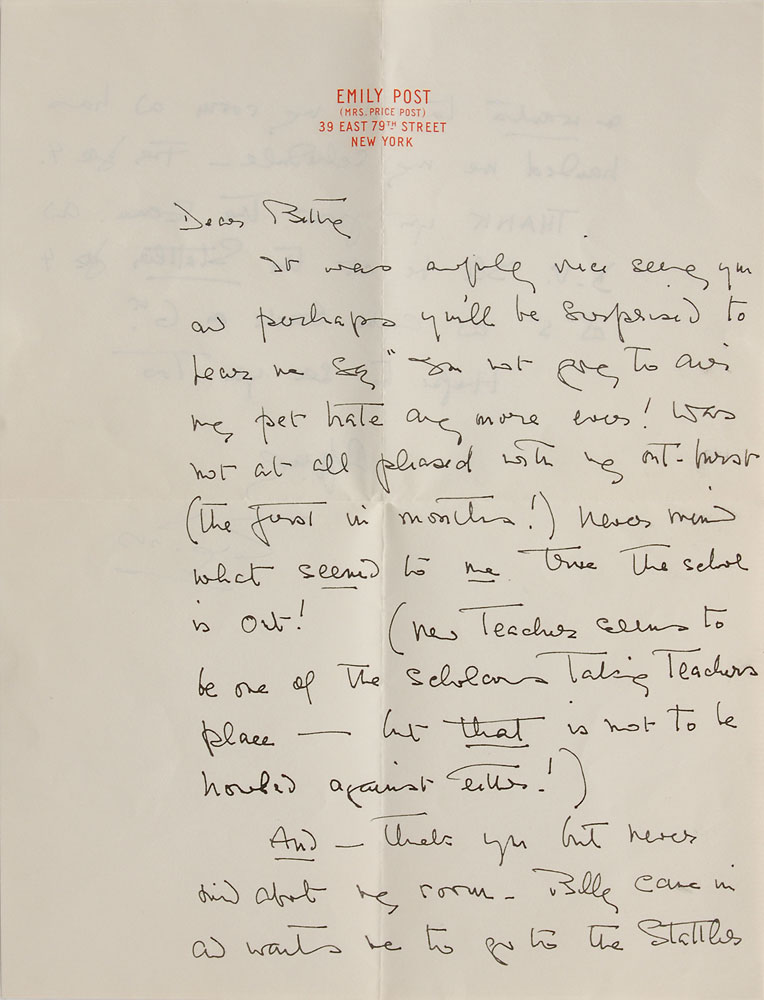 EMILY POST
(MRS. PRICE POST)
39 EAST 79TH STREET
NEW YORK
Dear Betty
It was awfully nice seeing you
and perhaps you'll be surprised to
hear me say " I'm not going to
my pet hate any more ever! Was
not at all pleased with my out-burst
(the first in months!) Never mind
what seemed to me true the school
is out! (new Teacher seems to
be one of the scholars Taking Teachers
place — but that is not to be
against either!)
And — thank you but never
mind about my room - Billy came in
and wants me to go to the